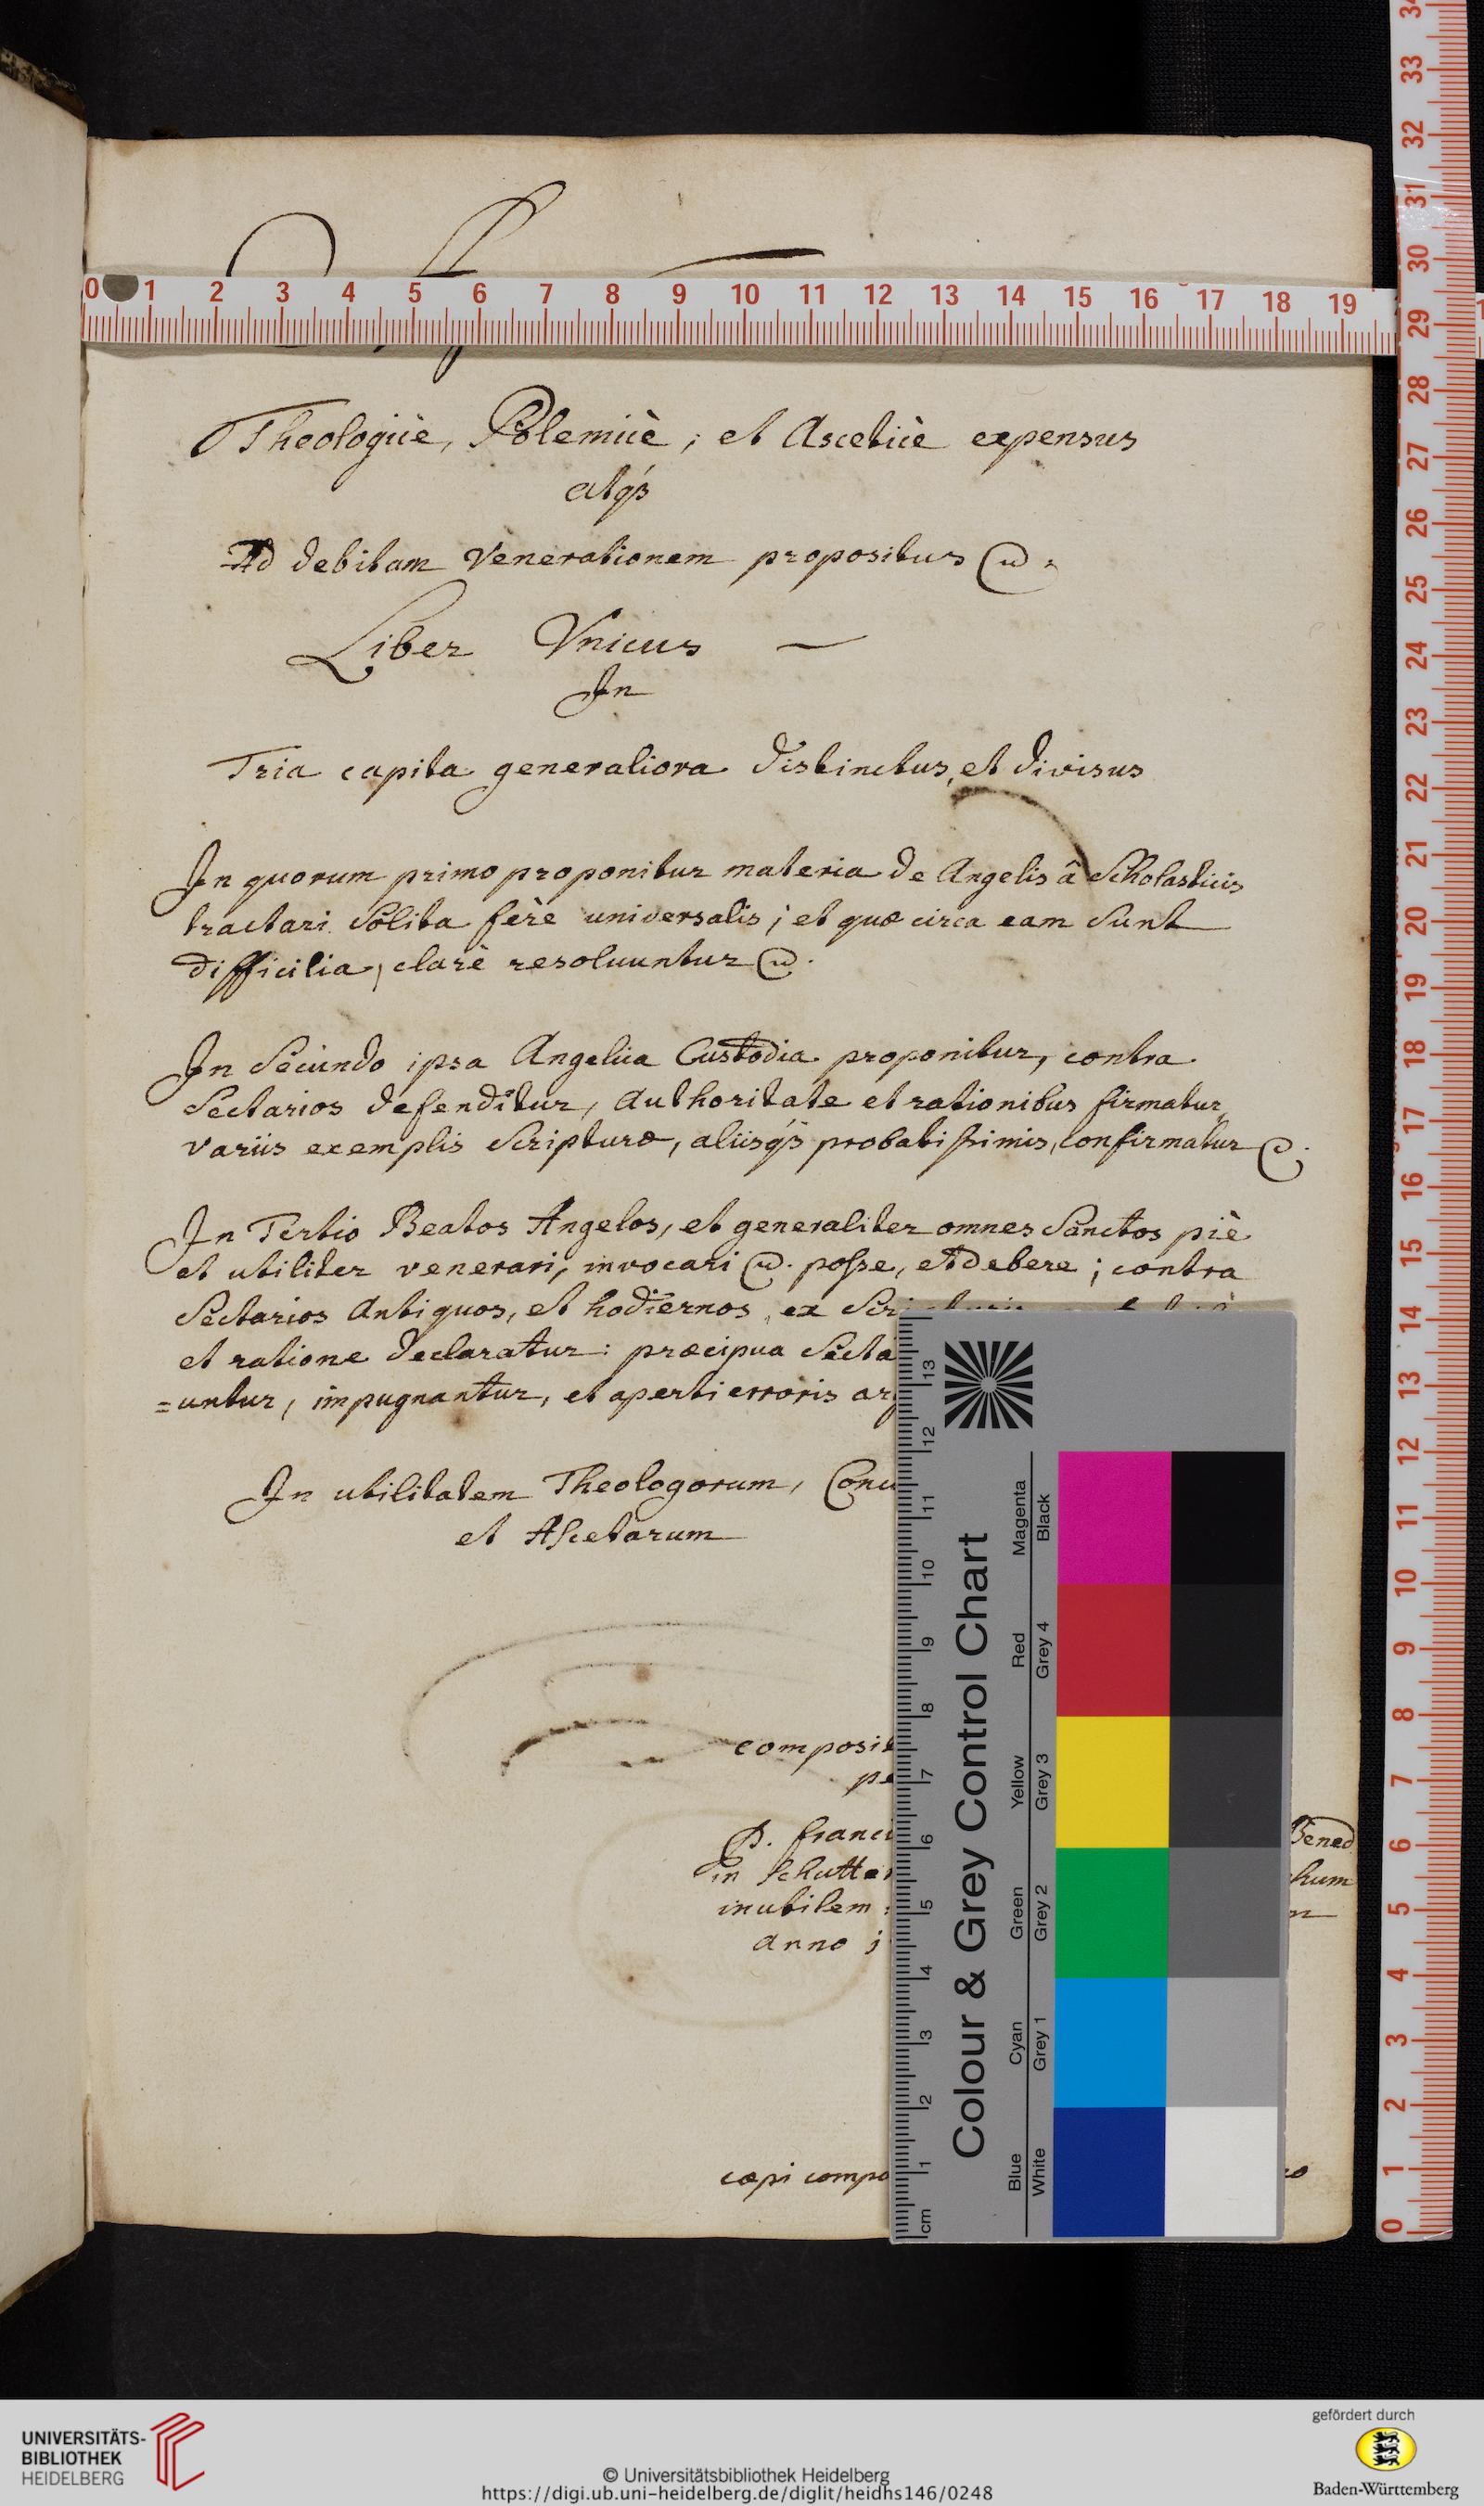 Theologicè, Polemicè, et Asceticè expensus
atq́3
Ad debitam Venerationem propositus
Liber Vnicus —
In
Tria capita generaliora distinctus, et divisus
In quorum primo proponitur materia de Angelis â Scholasticis
tractari solita ferè universalis; et quæ circa eam sunt
difficilia, clarè resoluuntur
In Secundo ipsa Angelica Custodia proponitur, contra
Sectarios defenditur, Authoritate et rationibus firmatur,
variis exemplis Scripturæ, aliisq́3 probatissimis, confirmatur
In Tertio Beatos Angelos, et generaliter omnes Sanctos piè
et utiliter venerari, invocari posse, et debere; contra
Sectarios Antiquos, et hodiernos, ex
et ratione declaratur: præcipua
=untur, impugnantur, et aperti erroris
In utilitatem Theologorum,
et Ascetarum
composit
pe
P. Franci Bened
in Schutter hum
inutilem
anno
cæpi compo
0 1 2 3 4 5 6 7 8 9 10 11 12 13 14 15 16 17 18 19
34
33
32
31
30
29
28
27
26
25
24
23
22
21
20
19
18
17
16
15
14
13
12
11
10
9
8
7
6
5
4
3
2
1
0
Colour & Grey Control Chart
Magenta Black
Red Grey 4
Yellow Grey 3
Green Grey 2
Cyan Grey 1
Blue White
13
12
11
10
9
8
7
6
5
4
3
2
1
cm
UNIVERSITÄTS-
BIBLIOTHEK
HEIDELBERG
© Universitätsbibliothek Heidelberg
https://digi.ub.uni-heidelberg.de/diglit/heidhs146/0248
gefördert durch
Baden-Württemberg